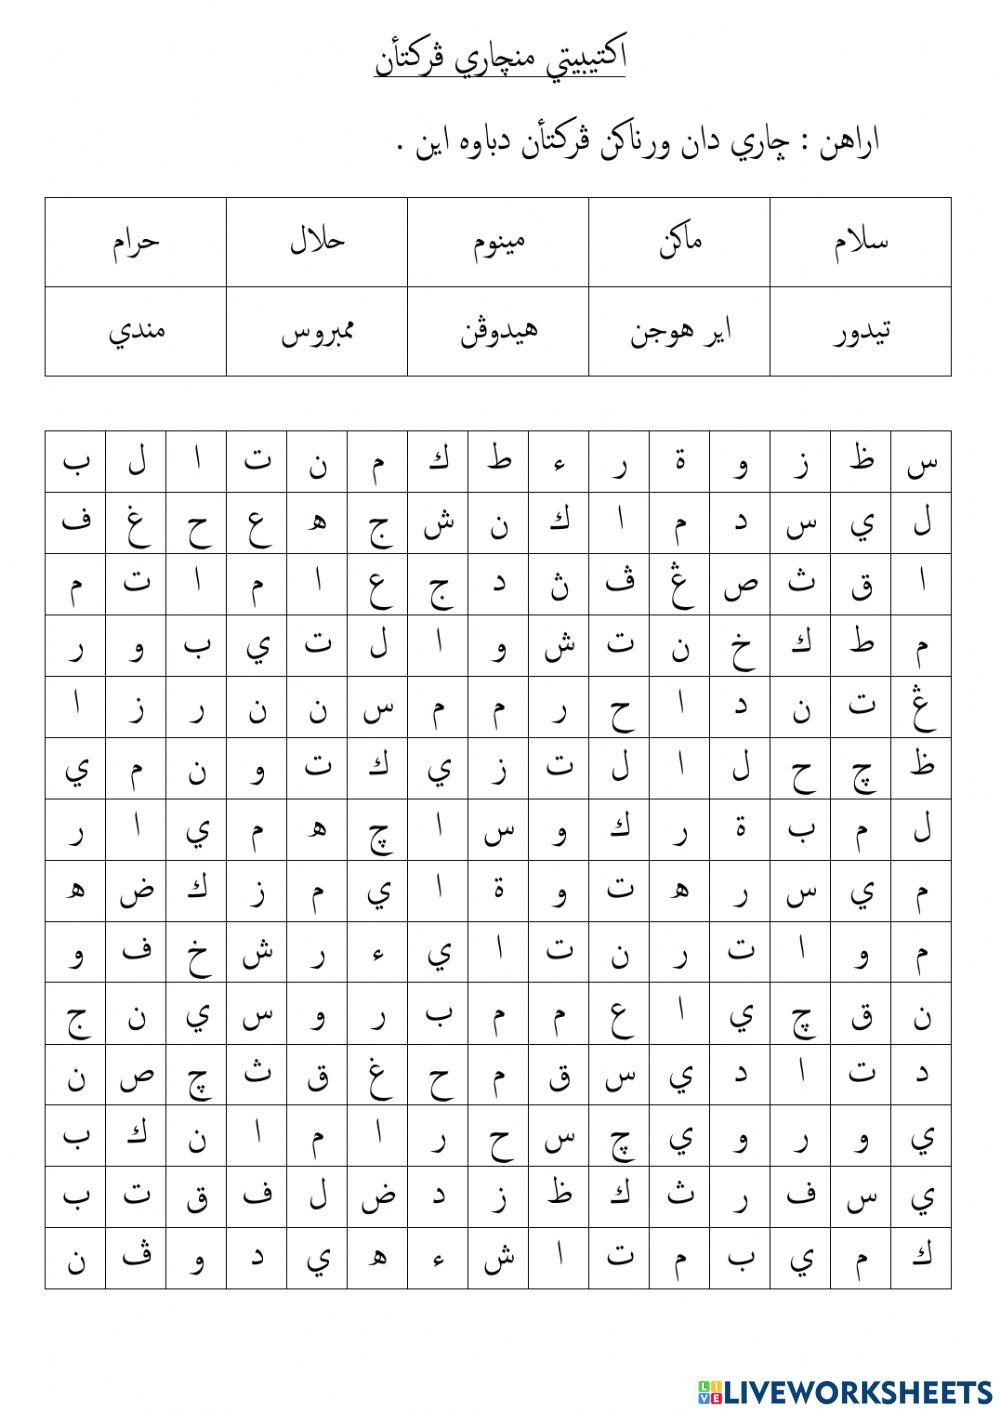 اكتيبيتي منچاري ڤركتأن
اراهن : چاري دان ورناكن ڤركتأن دباوه اين .
سلام ماكن مينوم حلال حرام
تيدور اير هوجن هيدوڤن ممبروس مندي
س ظ ز و ة ر ء ط ك م ن ت ا ل ب
ل ي س د م ا ك ن ش ج ه ع ح غ ف
ا ق ث ص ڠ ڤ ڽ د ج ع ا م ا ت م
م ط ك خ ن ت ش و ا ل ت ي ب و ر
ڠ ت ن د ا ح ر م م س ن ن ر ز ا
ظ چ ح ل ا ل ت ز ي ك ت و ن م ي
ل م ب ة ر ك و س ا چ ه م ي ا ر
م ي س ر ه ت و ة ا ي م ز ك ض ه
م و ا ت ر ن ت ا ي ء ر ش خ ف و
ن ق چ ي ا ع م م ب ر و س ي ن ج
د ت ا د ي س ق م ح غ ق ث چ ص ن
ي و ر و ي چ س ح ر ا م ا ن ك ب
ي س ف ر ث ك ظ ز د ض ل ف ق ت ب
ك م ي ب م ت ا ش ء ه ي د و ڤ ن
LIVEWORKSHEETS